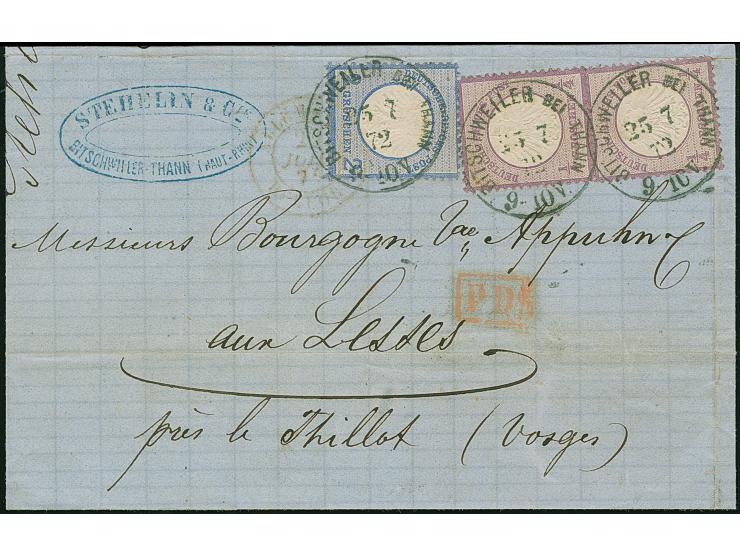 STEHELIN & Cie
BITSCHWILLER-THANN (HAUT-RHIN)
BITSCHWEILER BEI THANN
25 7
72
9-10V.
BITSCHWEILER BEI THANN
25 7
72
9-10V.
BITSCHWEILER BEI THANN
25 7
72
9-10V.
Messieurs Bourgogne Vve Appuhn
P.D.
aux Lesses
près le Thillot (Vosges)